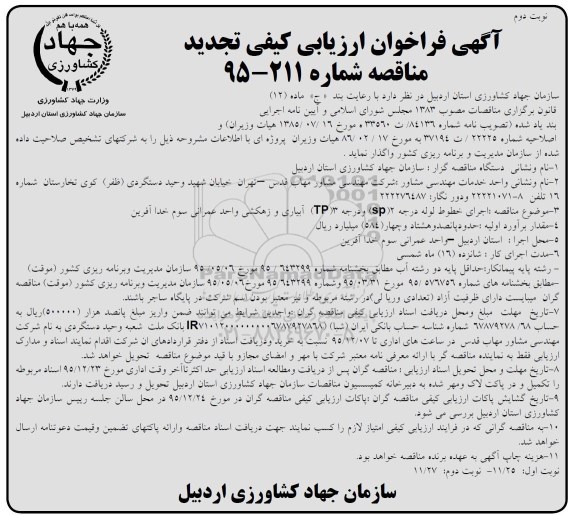 نوبت دوم
همه با هم
جهاد
کشاورزی
وزارت جهاد کشاورزی
سازمان جهاد کشاورزی استان اردبیل
آگهی فراخوان ارزیابی کیفی تجدید
مناقصه شماره ۲۱۱-۹۵
سازمان جهاد کشاورزی استان اردبیل در نظر دارد با رعایت بند « ج» ماده (۱۲)
قانون برگزاری مناقصات مصوب ۱۳۸۳ مجلس شورای اسلامی و آیین نامه اجرایی
بند یاد شده (تصویب نامه شماره ۸۴۱۳۶/ ت ۳۳۵۶۰ ه مورخ ۱۶/ ۰۷/ ۱۳۸۵ هیات وزیران) و
اصلاحیه شماره ۲۲۲۲۵ / ت ۳۷۱۹۴ به مورخ ۱۷ / ۰۲/ ۸۶ هیات وزیران پروژه ای با اطلاعات مشروحه ذیل را به شرکتهای تشخیص صلاحیت داده
شده از سازمان مدیریت و برنامه ریزی کشور واگذار نماید .
۱-نام ونشانی دستگاه مناقصه گزار : سازمان جهاد کشاورزی استان اردبیل
۲-نام ونشانی واحد خدمات مهندسی مشاور :شرکت مهندسی مشاور مهاب قدس –تهران خیابان شهید وحید دستگردی (ظفر) کوی تخارستان شماره
۱۶ تلفن ۸-۲۲۲۲۱۰۷۱ ودور نگار: ۲۲۲۲۷۶۴۸۷
۳-موضوع مناقصه :اجرای خطوط لوله درجه ۲(sp) ودرجه ۳(TP) آبیاری و زهکشی واحد عمرانی سوم خدا آفرین
۴-مقدار برآورد اولیه :حدودپانصدوهشتاد وچهار(۵۸۴) میلیارد ریال
۵-محل اجرا : استان اردبیل –واحد عمرانی سوم خدا آفرین
۶-مدت اجرای کار : شانزده (۱۶) ماه شمسی
- رشته پایه پیمانکار:حداقل پایه دو رشته آب مطابق بخشنامه شماره ۶۴۳۲۹۹ / ۹۵ مورخ ۹۵/۰۵/۰۶ سازمان مدیریت وبرنامه ریزی کشور (موقت)
-مطابق بخشنامه های شماره ۹۵/۵۷۶۷۵۶ مورخ ۹۵/۰۳/۳۱ وشماره ۹۵/۶۴۳۲۹۹ مورخ ۹۵/۰۵/۰۶ سازمان مدیریت وبرنامه ریزی کشور (موقت) مناقصه
گران میبایست دارای ظرفیت آزاد (تعدادی وریا لی)در رشته مربوطه و نیز معتبر بودن اسم شرکت در پایگاه ساجر باشند.
۷-تاریخ مهلت مبلغ ومحل دریافت اسناد ارزیابی کیفی مناقصه گران :واجدین شرایط می توانند ضمن واریز مبلغ پانصد هزار (۵۰۰۰۰۰)ریال به
حساب ۶۷۸۷۹۲۷۸/ ۶۸ شماره شناسه حساب بانکی ایران (شبا) بانک ملت شعبه وحید دستگردی به نام شرکت
مهندسی مشاور مهاب قدس در ساعت های اداری تا ۹۵/۱۲/۰۷ نسبت به خرید ودریافت اسناد از دفتر قراردادهای ان شرکت اقدام نمایند اسناد و مدارک
ارزیابی فقط به نماینده مناقصه گر با ارائه معرفی نامه معتبر شرکت با مهر و امضای مجازو با قید موضوع مناقصه تحویل خواهد شد.
۸-تاریخ مهلت و محل تحویل اسناد ارزیابی : مناقصه گران پس از دریافت ومطالعه اسناد ارزیابی حد اکثرتاآخر وقت اداری مورخ ۹۵/۱۲/۲۳ اسناد مربوطه
را تکمیل و در پاکت لاک ومهر شده به دبیرخانه کمیسیون مناقصات سازمان جهاد کشاورزی استان اردبیل تحویل و رسید دریافت دارند.
۹-تاریخ گشایش پاکات ارزیابی کیفی مناقصه گران :پاکات ارزیابی کیفی مناقصه گران در مورخ ۹۵/۱۲/۲۴ در محل سالن جلسه رییس سازمان جهاد
کشاورزی استان اردبیل بررسی می شود.
۱۰-به مناقصه گرانی که در فرایند ارزیابی کیفی امتیاز لازم را کسب نمایند جهت دریافت اسناد مناقصه وارائه پاکتهای تضمین وقیمت دعوتنامه ارسال
خواهد شد.
۱۱-هزینه چاپ آگهی به عهده برنده مناقصه خواهد بود.
نوبت اول: ۱۱/۲۵- نوبت دوم: ۱۱/۲۷
سازمان جهاد کشاورزی اردبیل